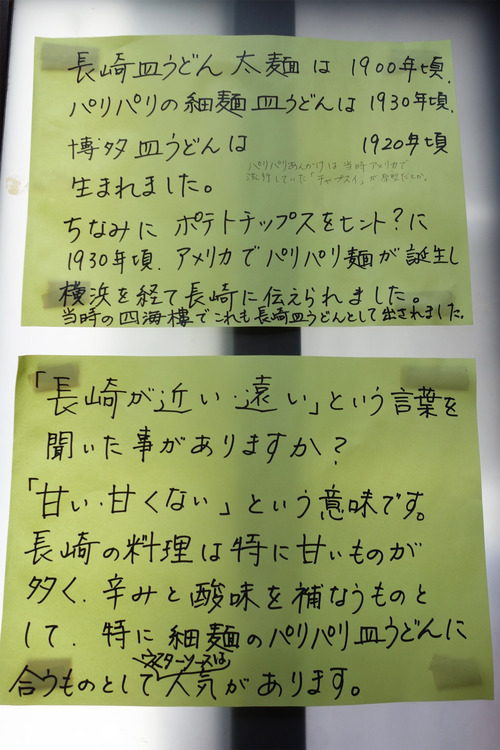 長崎皿うどん 太麺は 1900年頃.
パリパリの細麺皿うどんは1930年頃.
博多皿うどんは 1920年頃
パリパリあんかけは当時アメリカで
流行していた「チャプスイ」が
生まれました。
ちなみに ポテトチップスをヒント?に
1930年頃. アメリカでパリパリ麺が誕生し
横浜を経て長崎に伝えられました。
当時の四海樓でこれも長崎皿うどんとして出されました。
「長崎が近い・遠い」という言葉を
聞いた事がありますか?
「甘い・甘くない」という意味です。
長崎の料理は特に甘いものが
多く. 辛みと酸味を補なうものと
して. 特に細麺のパリパリ皿うどんに
ウスターソースは
合うものとして人気があります。